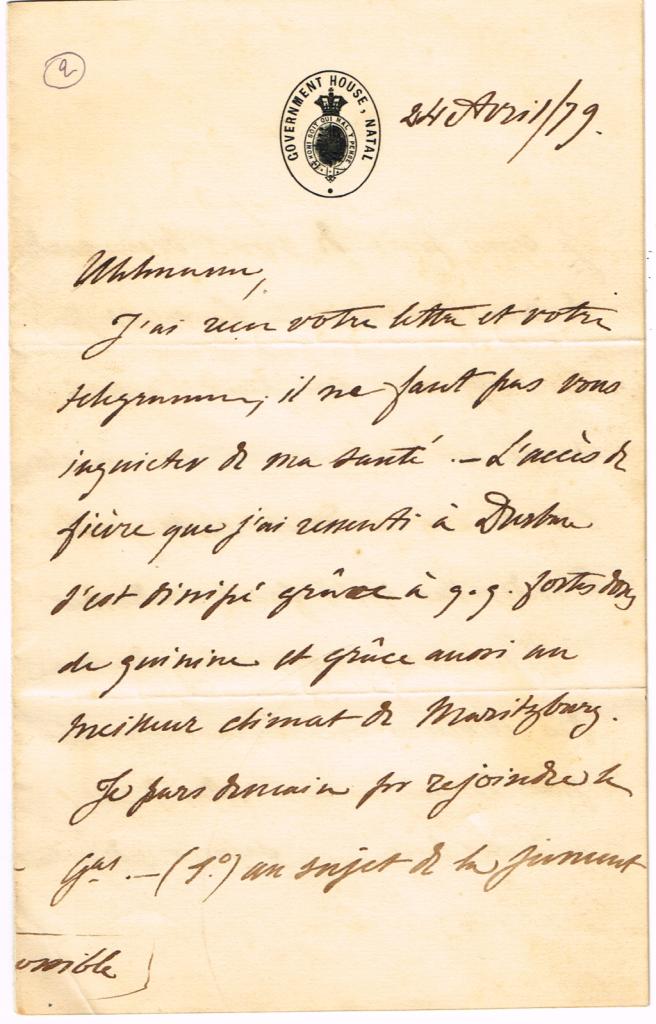 2
GOVERNMENT HOUSE, NATAL
HONI SOIT QUI MAL Y PENSE
24 Avril/79.
Uhlmann,
J'ai reçu votre lettre et votre
telegramme, il ne faut pas vous
inquieter de ma santé. — L'accès de
fièvre que j'ai ressenti à Durban
s'est dissipé grâce à q.q. fortes doses
de quinine et grâce aussi au
meilleur climat de Maritzburg.
Je pars demain pr rejoindre le
Gal. — (1o) au sujet de la jument
ossible